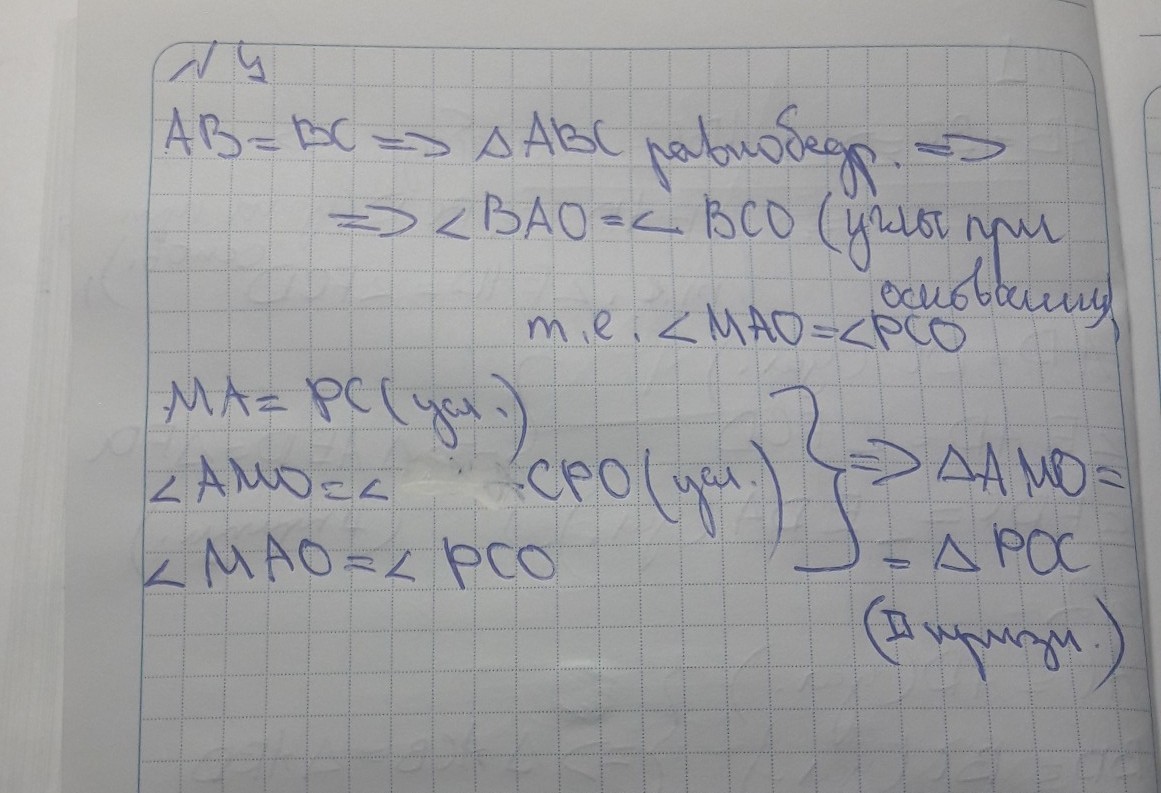 N 4
AB = BC => △ABC равнобедр. =>
=> ∠BAO = ∠ BCO (углы при
основании)
т.е. ∠MAO = ∠PCO
MA = PC (усл.)
∠AMO = ∠ CPO (усл.) } => △AMO =
∠MAO = ∠ PCO = △ POC
(II призн.)